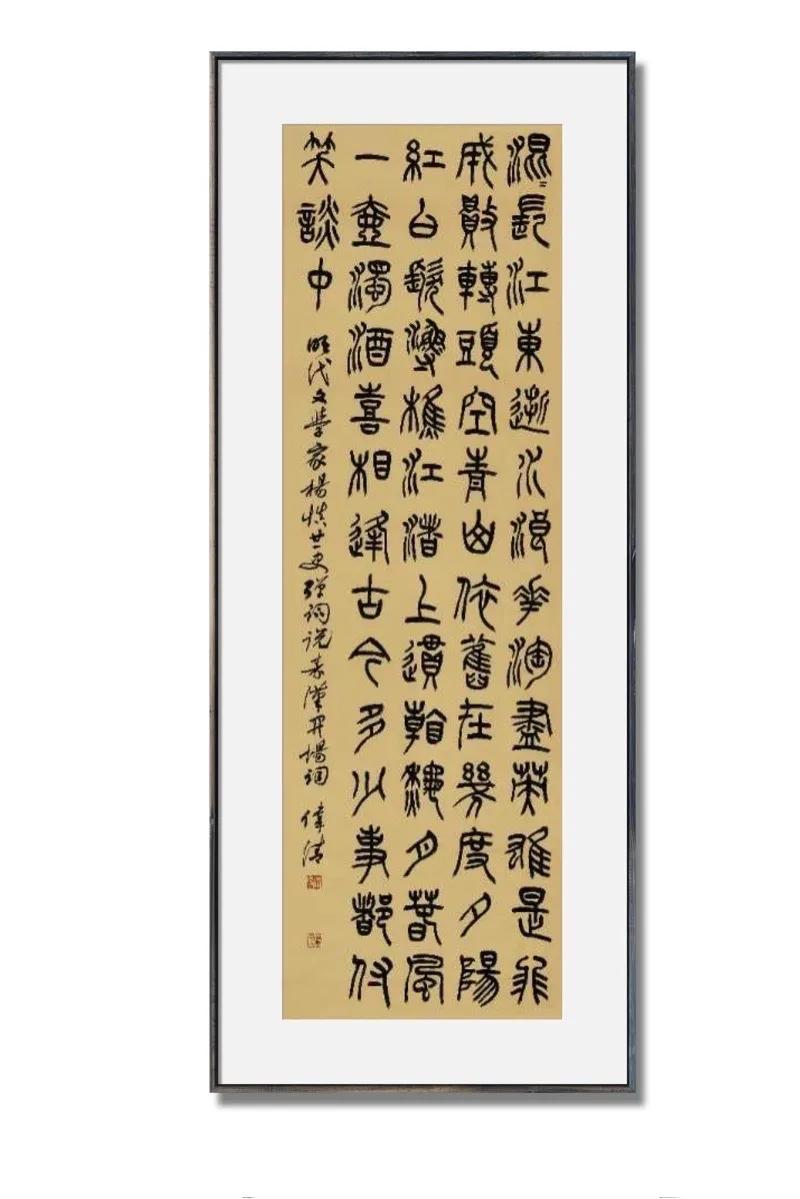 混〻長江東逝水浪花淘盡英雄是非
成敗轉頭空青山依舊在幾度夕陽
紅白髮漁樵江渚上慣看秋月春風
一壺濁酒喜相逢古今多少事都付
笑談中 明代文學家楊慎廿一史彈詞說秦漢開場詞 偉清